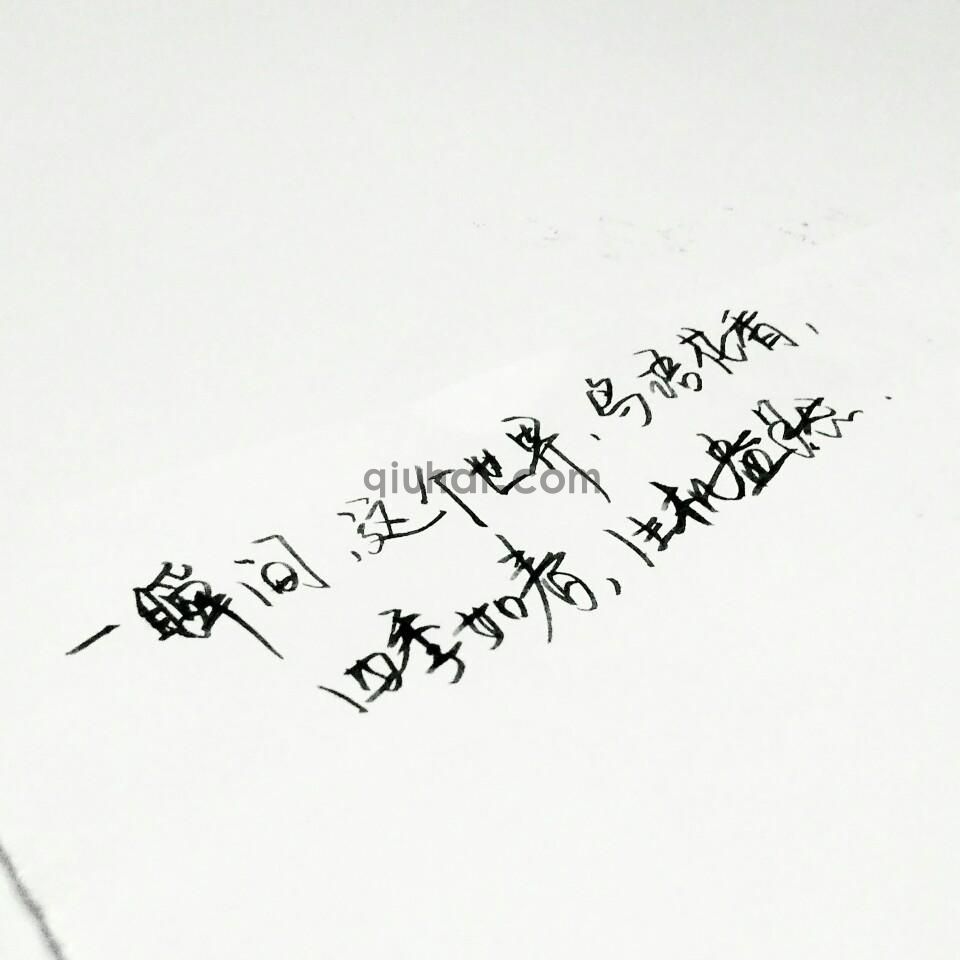 一瞬间,这个世界,鸟语花香,
四季如春,生机盎然.
qiukai.com